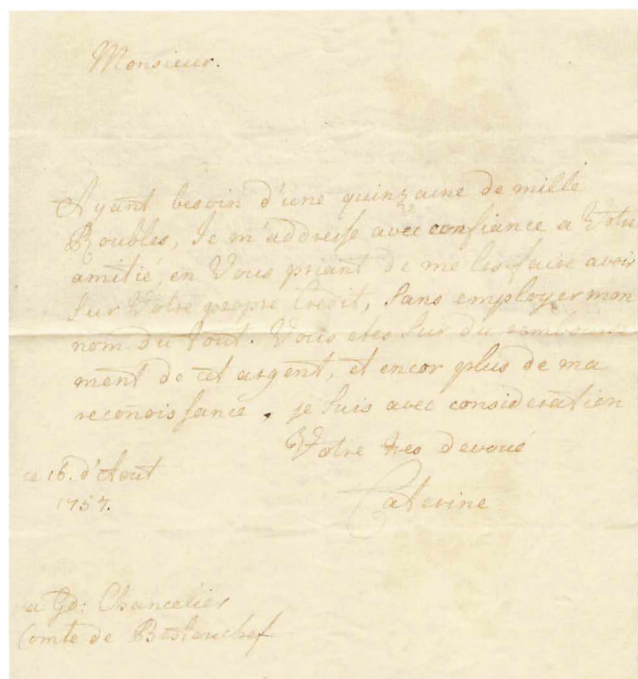 Monsieur.
Ayant besoin d'une quinzaine de mille
Roubles, Je m'addresse avec confiance a Votre
amitié, en Vous priant de me les faire avoir
sur Votre propre Credit, sans employer mon
nom du tout. Vous etes sur du rembourse
ment de cet argent, et encor plus de ma
reconoissance. je suis avec consideration
Votre tres devoué
ce 16. d'Aout
1757.
Caterine
a Gd: Chancelier
Comte de Bestouchef